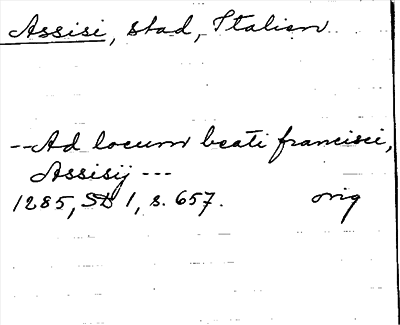 Assisi, stad, Italien
--Ad locum beati francisci,
Assisij ---
1285, SD 1, s. 657. orig